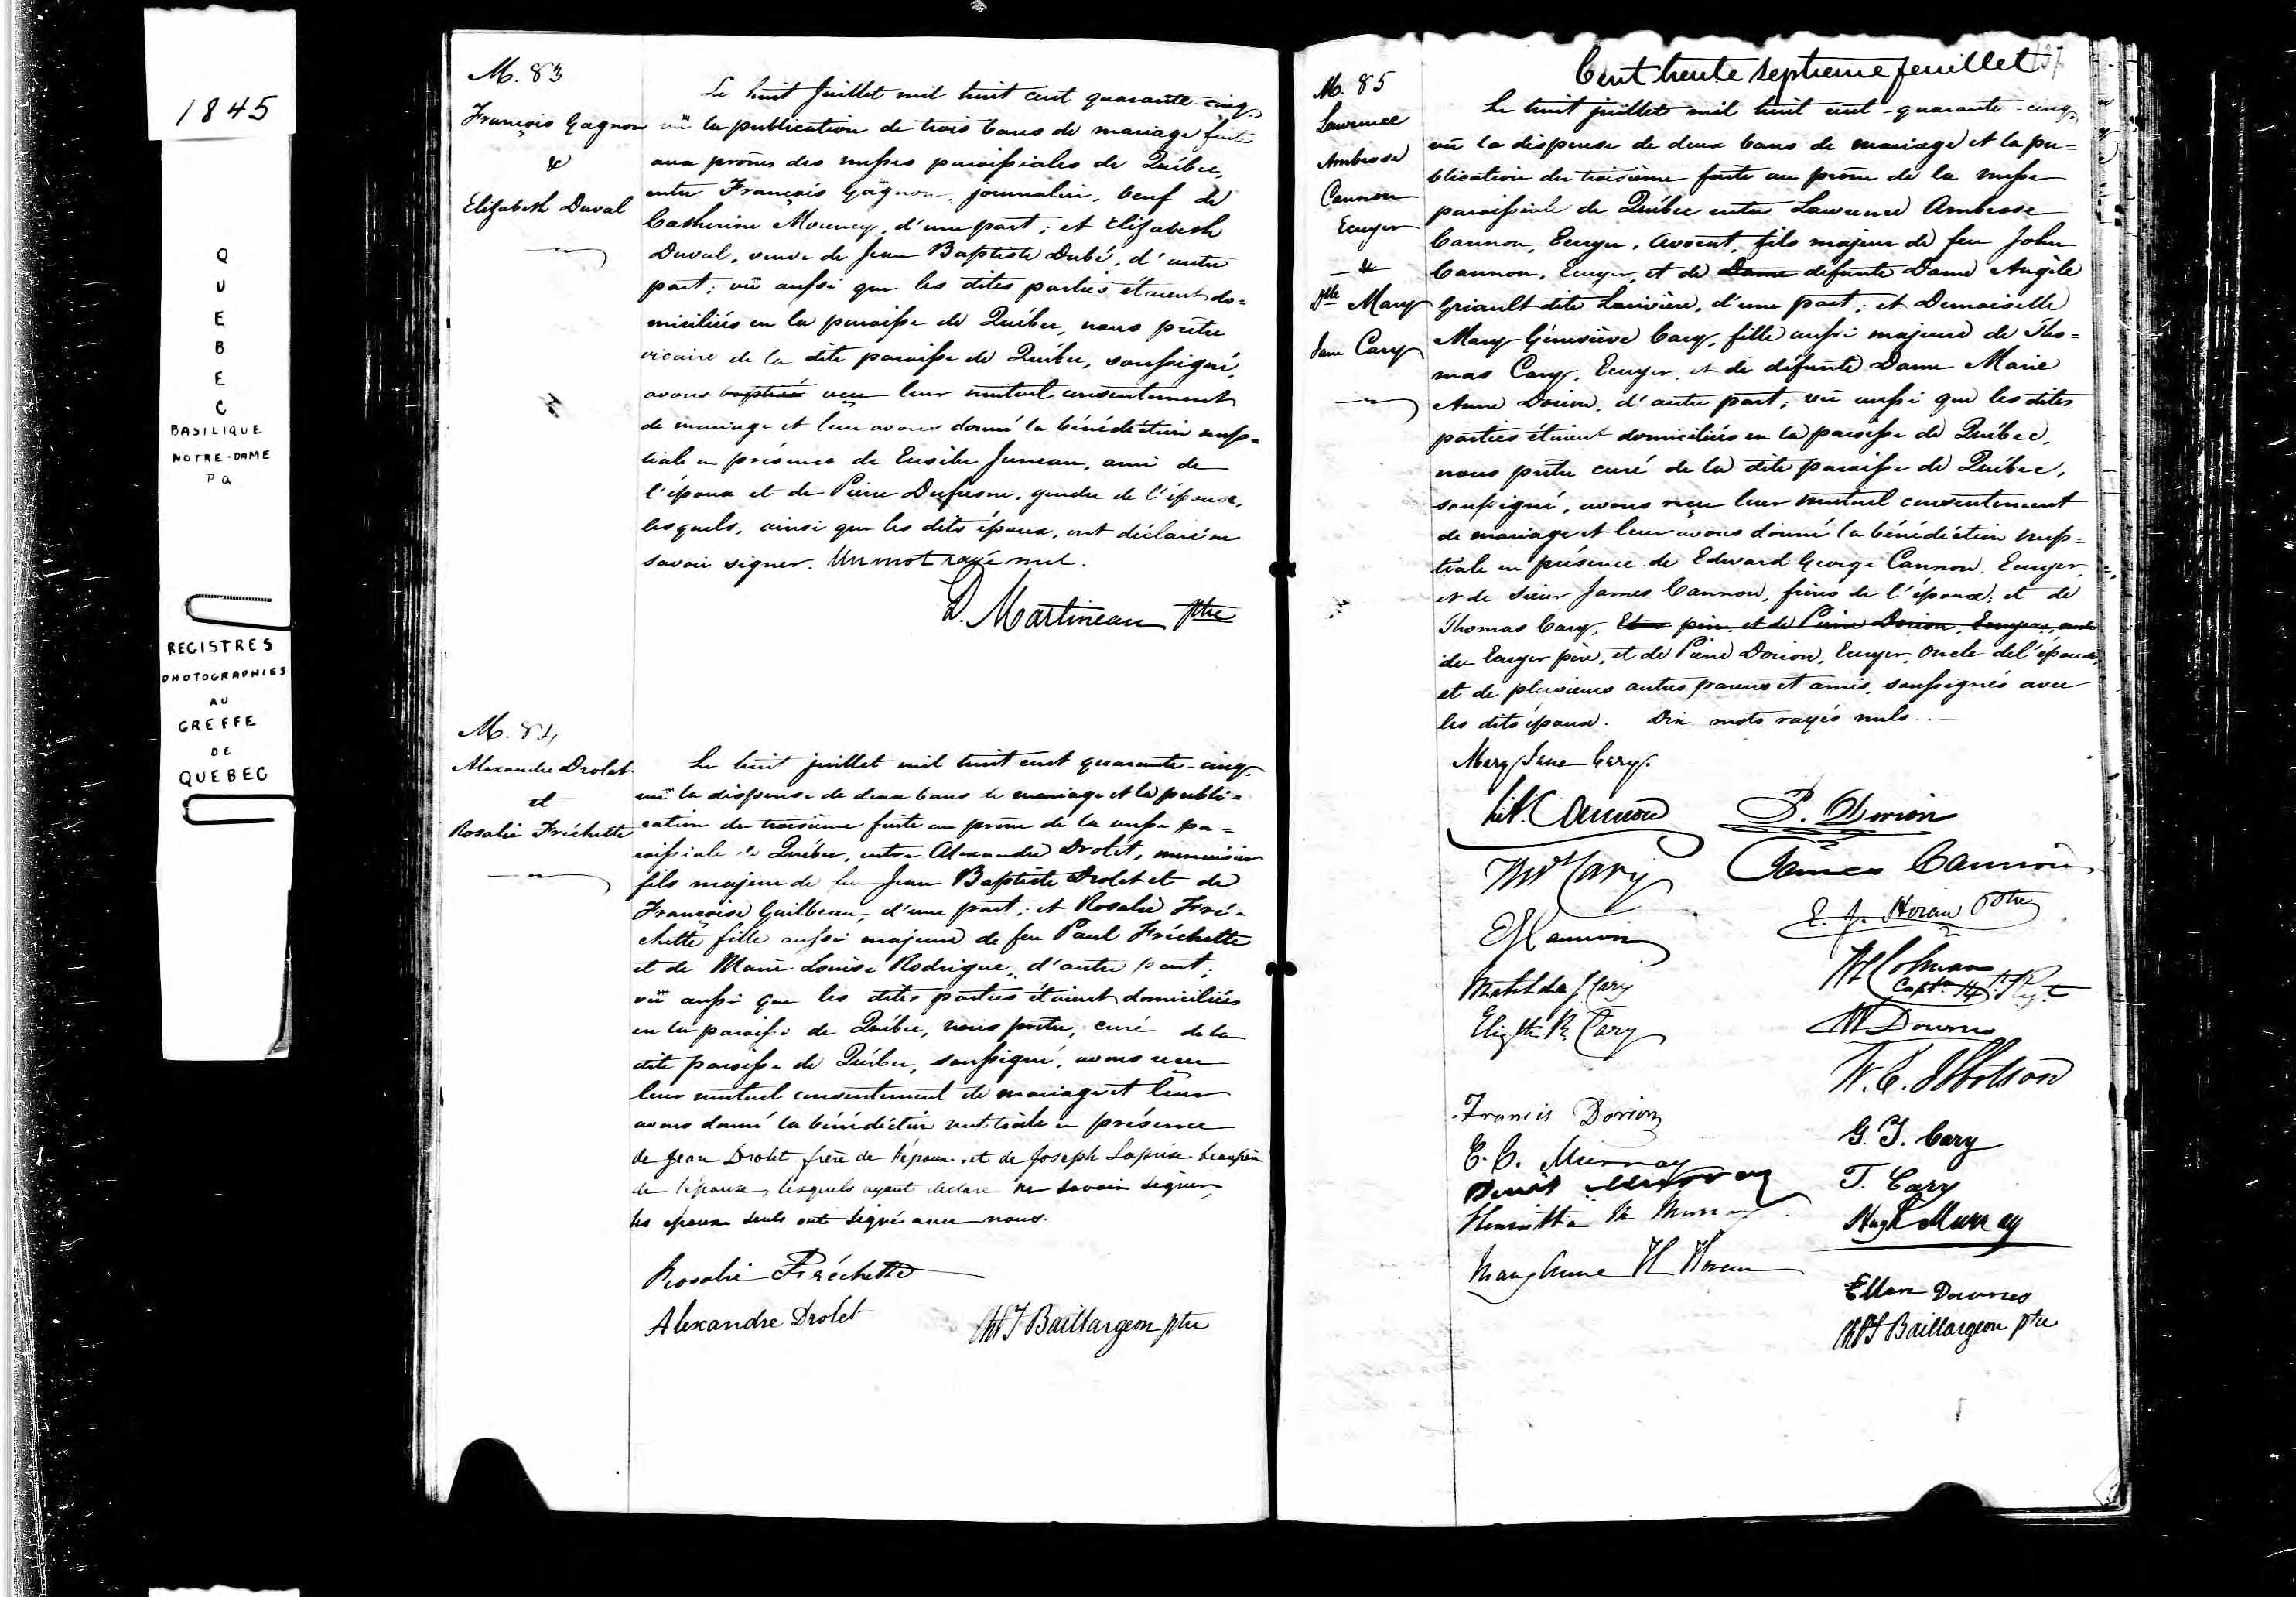 1845
Q
U
E
B
E
C
BASILIQUE
NOTRE-DAME
PQ
REGISTRES
PHOTOGRAPHIES
AU
GREFFE
DE
QUEBEC
M. 83
François Gagnon
&
Elizabeth Duval
Le huit Juillet mil huit cent quarante-cinq,
vû la publication de trois bans de mariage faite
aux prônes des messes paroissiales de Québec,
entre François Gagnon, journalier, veuf de
Catherine, d'une part; et Elizabeth
Duval, veuve de Jean Baptiste Dubé, d'autre
part; vû aussi que les dites parties étaient do=
miciliées en la paroisse de Québec, nous prêtre
vicaire de la dite paroisse de Québec, soussigné,
avons baptisé reçu leur mutuel consentement
de mariage et leur avons donné la bénédiction nup=
tiale en présence de Eusèbe Juneau, ami de
l'époux et de Pierre Dufresne, gendre de l'épouse,
lesquels, ainsi que les dits époux, ont déclaré ne
savoir signer. Un mot rayé nul.
D. Martineau Ptre
M. 84
Alexandre Drolet
et
Rosalie Fréchette
Le huit juillet mil huit cent quarante-cinq,
vû la dispense de deux bans de mariage et la publi=
cation du troisième faite au prône de la messe pa=
roissiale de Québec, entre Alexandre Drolet, menuisier
fils majeur de feu Jean Baptiste Drolet et de
Françoise Guilbeau, d'une part; et Rosalie Fré=
chette fille aussi majeure de feu Paul Fréchette
et de Marie Louise Rodrigue, d'autre part;
vû aussi que les dites parties étaient domiciliées
en la paroisse de Québec, nous prêtre, curé de la
dite paroisse de Québec, soussigné, avons reçu
leur mutuel consentement de mariage et leur
avons donné la bénédiction nuptiale en présence
de Jean Drolet frère de l'époux, et de Joseph Laprise beaufrère
de l'épouse, lesquels ayant déclaré ne savoir signer,
les époux seuls ont signé avec nous.
Rosalie Fréchette
Alexandre Drolet
Chs F Baillargeon ptre
Cent trente septieme feuillet 137
M. 85
Lawrence
Ambrose
Cannon
Ecuyer
&
Dlle Mary
Jane Cary
Le huit juillet mil huit cent quarante-cinq,
vû la dispense de deux bans de mariage et la pu=
blication du troisième faite au prône de la messe
paroissiale de Québec entre Lawrence Ambrose
Cannon, Ecuyer, Avocat, fils majeur de feu John
Cannon, Ecuyer, et de Dame défunte Dame Angèle
Griault dite Larivière, d'une part; et Demoiselle
Mary Géneviève Cary, fille aussi majeure de Tho=
mas Cary, Ecuyer, et de défunte Dame Marie
Anne Dorion, d'autre part; vû aussi que les dites
parties étaient domiciliées en la paroisse de Québec,
nous prêtre curé de la dite paroisse de Québec,
soussigné, avons reçu leur mutuel consentement
de mariage et leur avons donné la bénédiction nup=
tiale en présence de Edward George Cannon, Ecuyer,
et de Sieur James Cannon, frères de l'époux; et de
Thomas Cary, père et de Pierre Dorion, Ecuyers,
Ecuyer père, et de Pierre Dorion, Ecuyer, Oncle de l'épouse,
et de plusieurs autres parens et amis, soussignés avec
les dits époux. Dix mots rayés nuls.
Mary Jane Cary.
Cannon
P. Dorion
Thos Cary
James Cannon
E G Cannon
E. J. Horan Ptre
Matilda J Cary
Colman
Captn 14th Regt
Elizth R. Cary
W Downes
W. C. Ibbotson
Francis Dorion
G. T. Cary
E. C. Murray
T. Cary
Denis Murray
Henrietta M Murray
Hugh Murray
Mary Anne H Horan
Ellen Downes
Chs F Baillargeon ptre